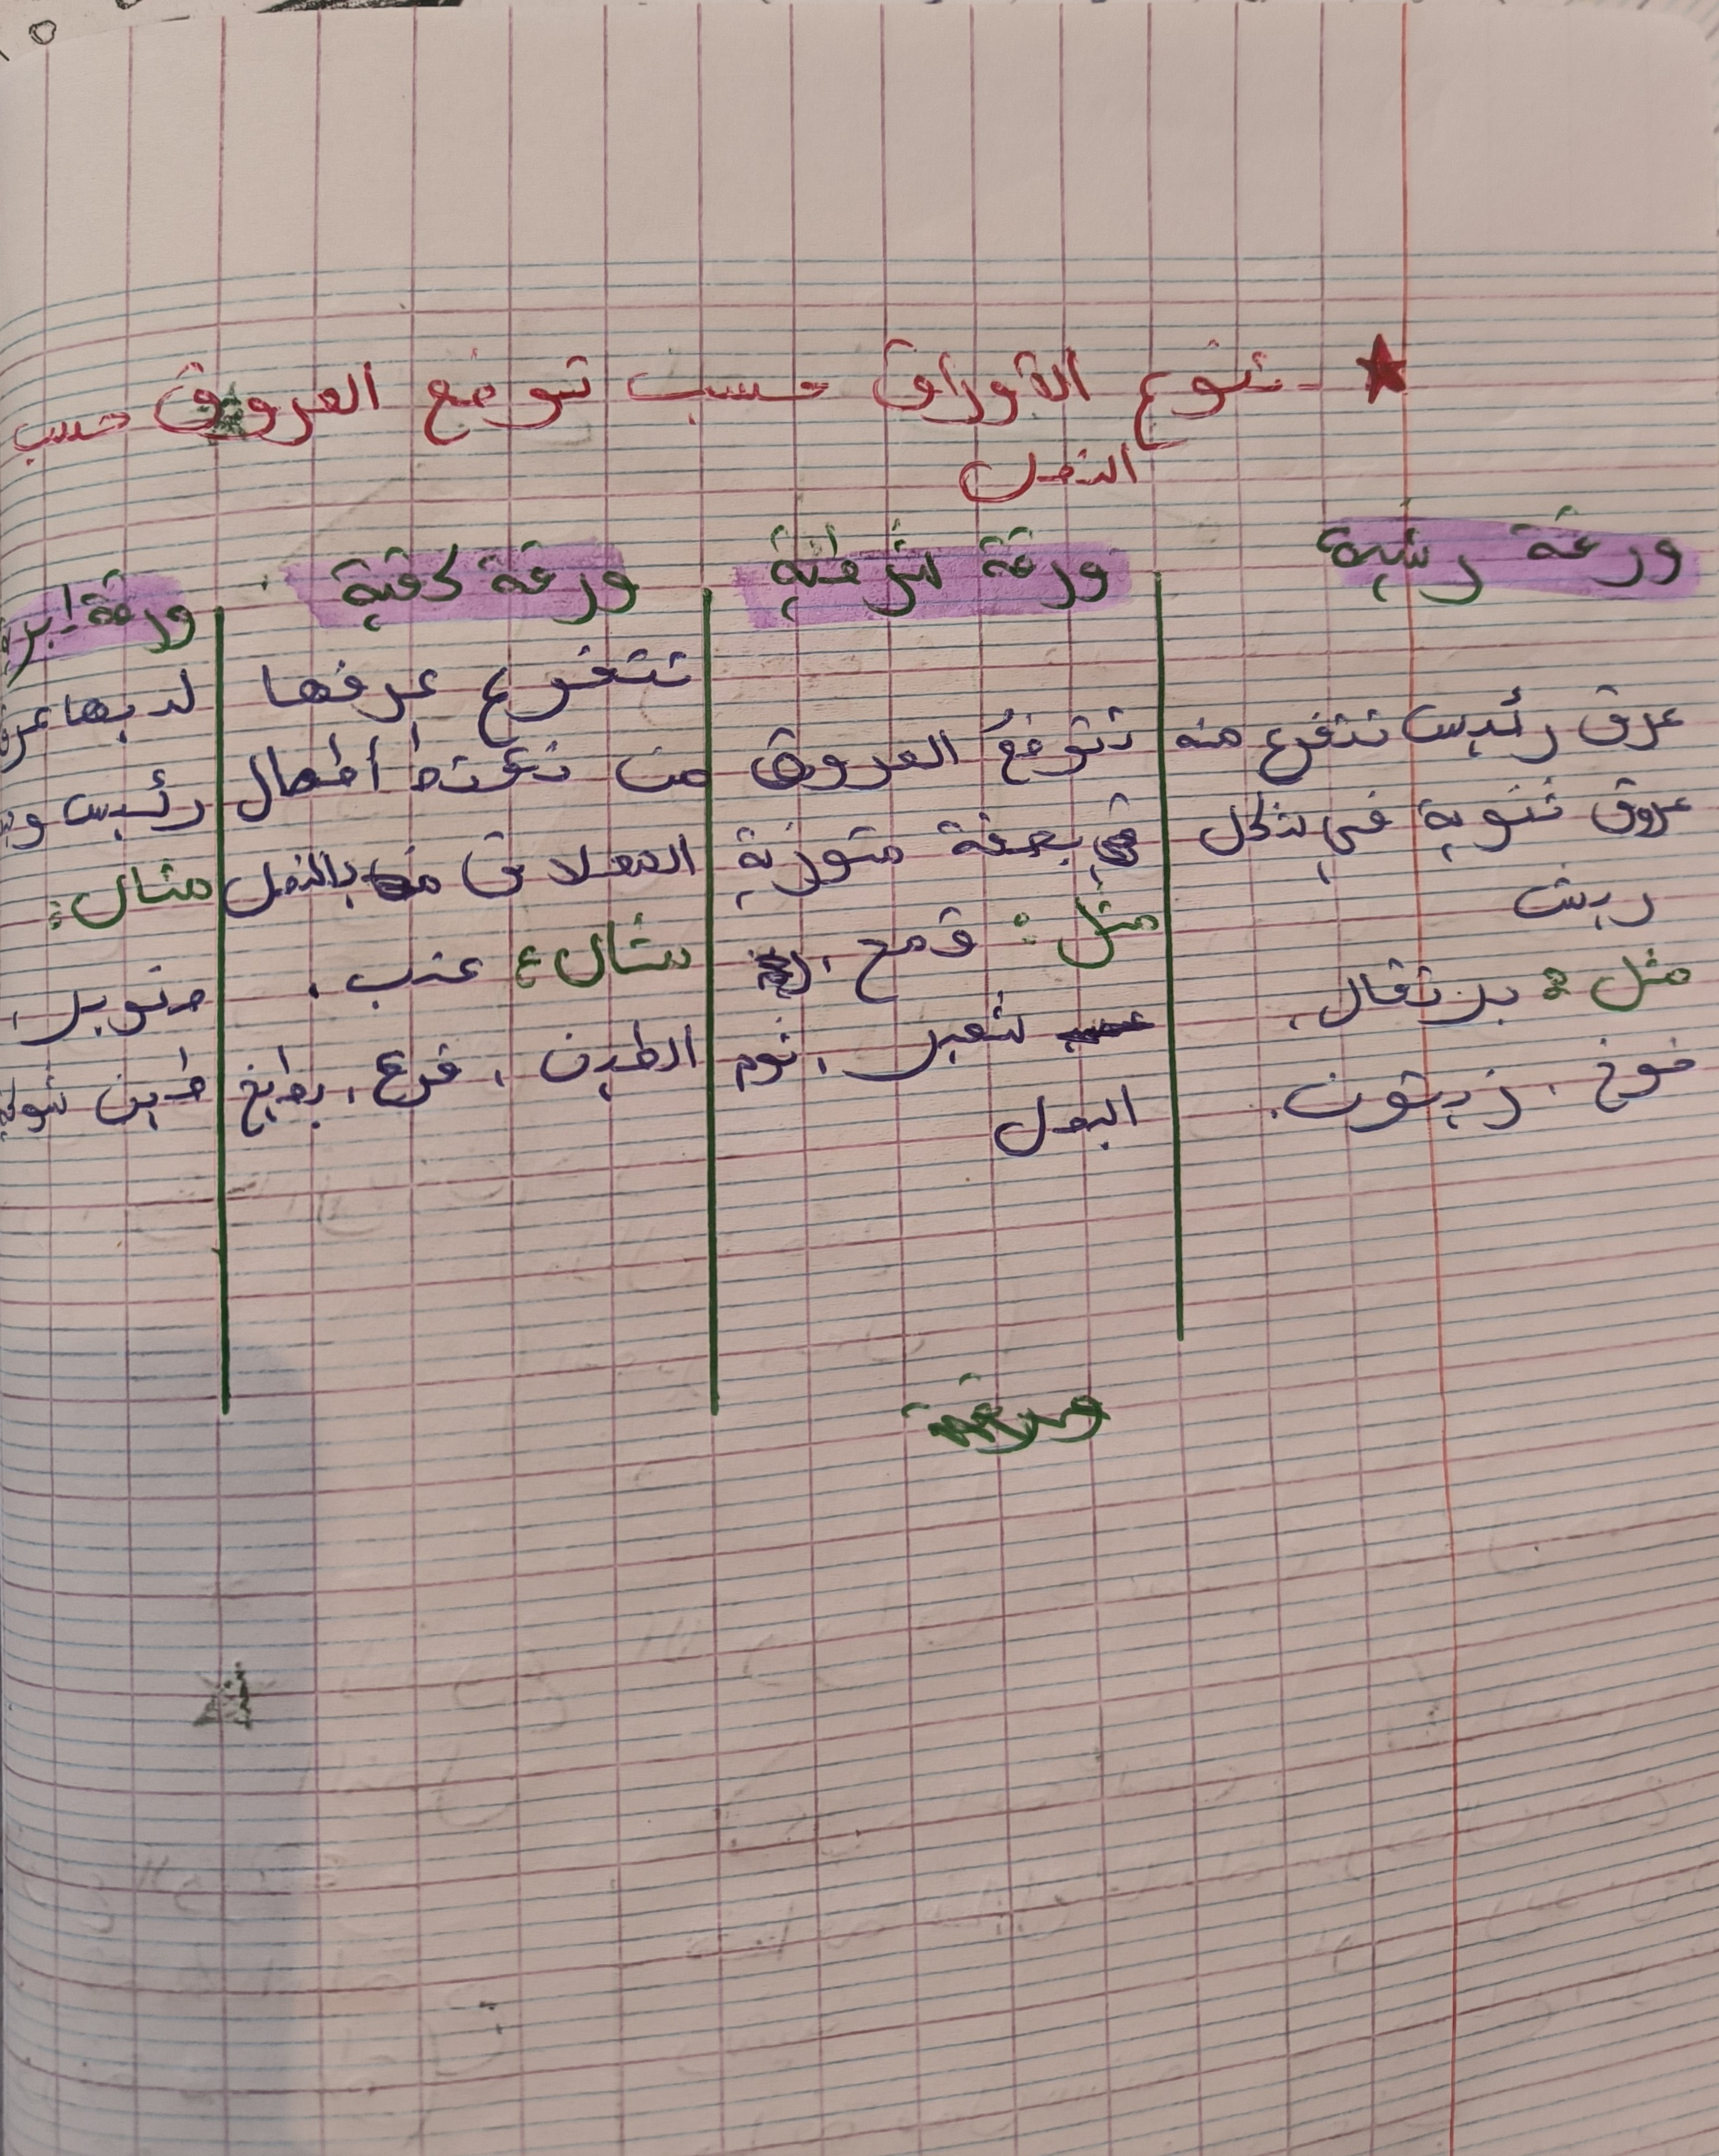 ★ - تنوع الأوراق حسب توضع العروق حسب
النصل
ورقة ريشية
عرق رئيس تتفرع منه
عروق ثنوية في شكل
ريش
مثل : برتقال،
خوخ ، زيتون.
ورقة شرطية
تتوضعُ العروق
بصفة متوزية
مثل : قمح ،
شعير ، ثوم
البصل
ورقة كفية
تتفرع عرقها
من نقطة اتصال
المعلاق بالنصل
مثال : عنب .
الطين ، قرع ، بطيخ
ورقة إبر
لديها عرق
رئيس و
مثال :
صنوبر ،
طين شوك
ورقة